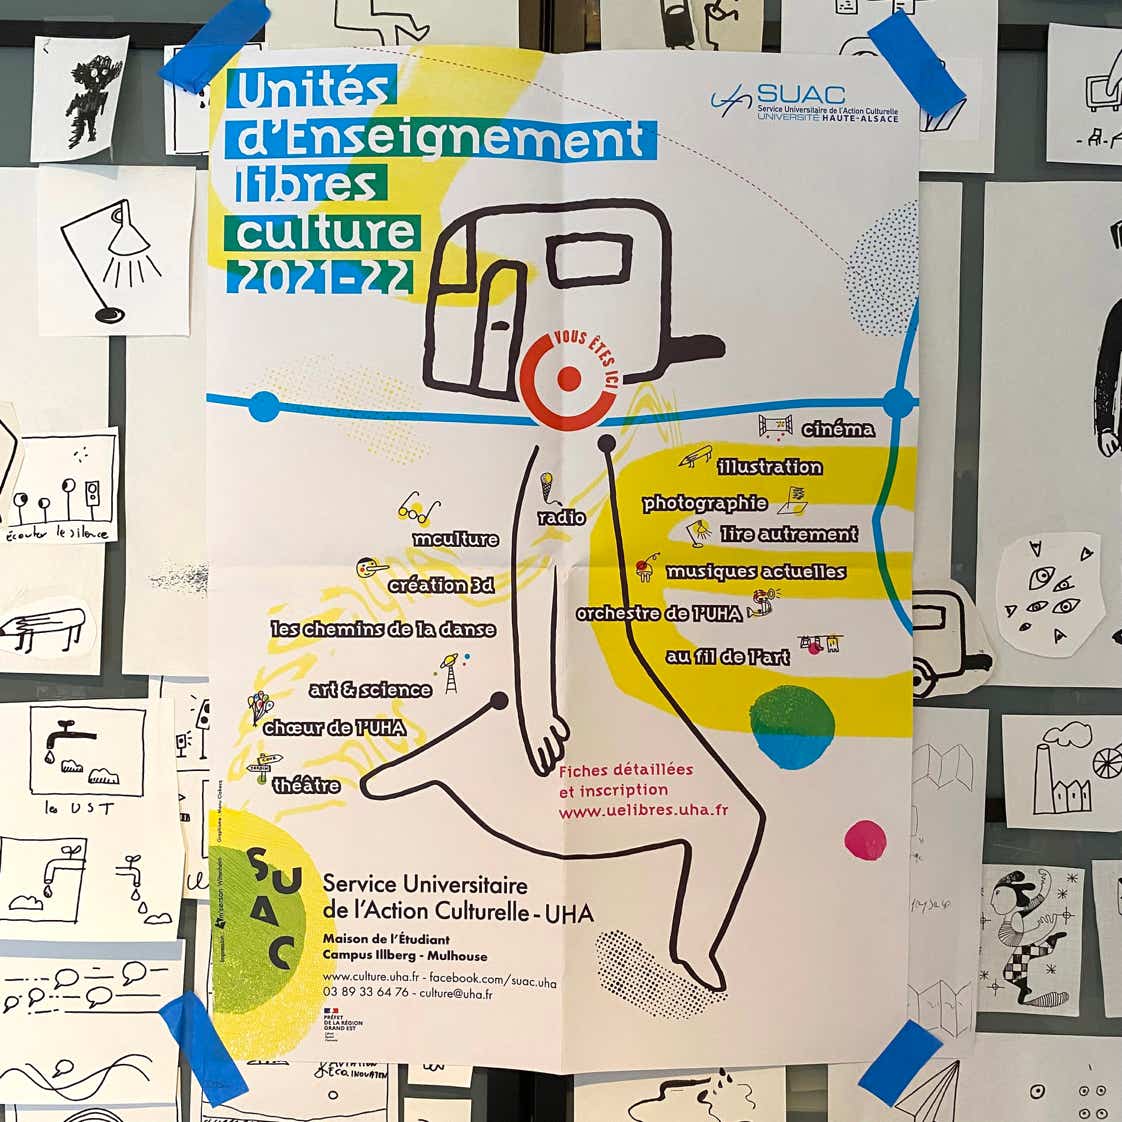 Unités
d'Enseignement
libres
culture
2021-22
SUAC
Service Universitaire de l'Action Culturelle
UNIVERSITÉ HAUTE-ALSACE
VOUS ÊTES ICI
cinéma
illustration
photographie
radio
lire autrement
mculture
musiques actuelles
création 3d
orchestre de l'UHA
les chemins de la danse
au fil de l'art
art & science
chœur de l'UHA
théâtre
Fiches détaillées
et inscription
www.uelibres.uha.fr
SUAC
Service Universitaire
de l'Action Culturelle - UHA
Maison de l'Étudiant
Campus Illberg - Mulhouse
www.culture.uha.fr - facebook.com/suac.uha
03 89 33 64 76 - culture@uha.fr
PRÉFET
DE LA RÉGION
GRAND EST
écouter le silence